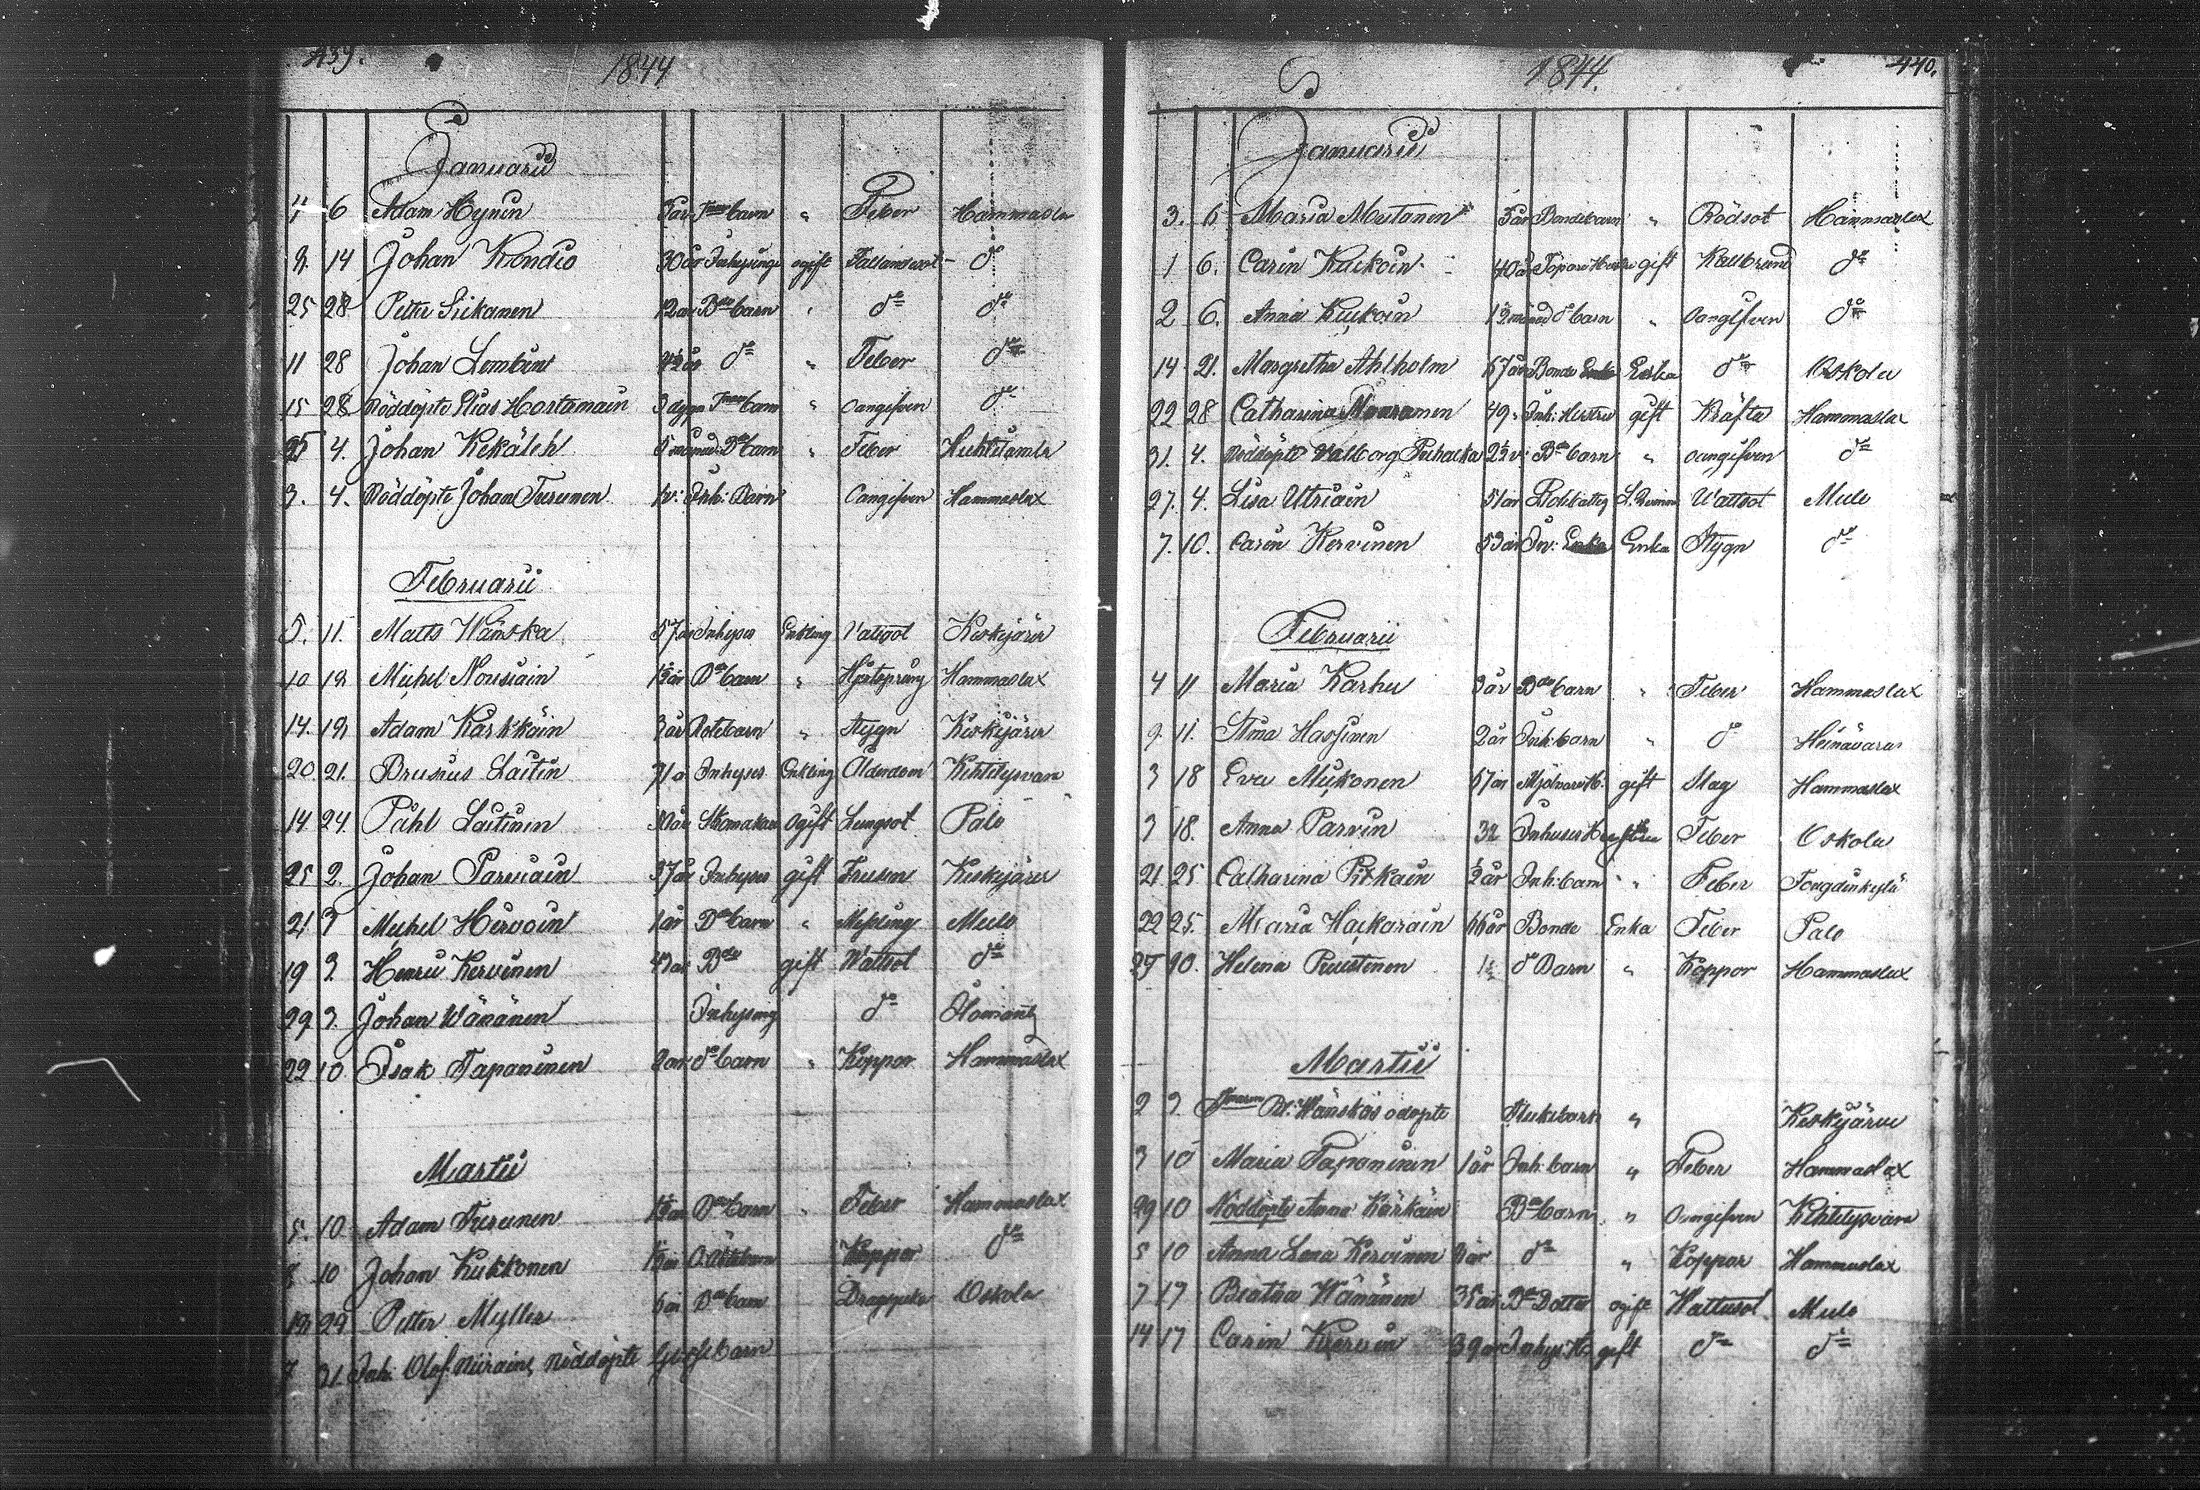 439.
1844
Januarii
4 6 Adam Hÿnin 5 år barn " Feber Hammaslax
8. 14 Johan Kondio 30 år Inhysing ogift dº
25 28 Petter Siikanen 12 år Bde barn " dº dº
11 28 Johan Lembin dº " Feber dº
15 28 Nöddöpte Elias Hortamain 3 dygn barn " Oangifven dº
25 4. Johan Kekäleh 5 månad Bde barn " Feber Huhtilamb
3. 4. Nöddöpte Johan Turunen 1 v: Inh: Barn Oangifven Hammaslax
Februarii
5. 11. Matts Wänska 57 år Inhyses Enkling Kiskijärvi
10 18 Michel Nousiain 1½ år Bde barn " Hammaslax
14. 18 Adam Karkkäin 3 år barn " Stygn Kiskijärvi
20. 21. Brusius Laitin 71 år Inhyses Enkling Ålderdom Kihtelysvara
14 24. Påhl Laitinen ogift Lungsot Palo
25 2. Johan Parviain 37 år Inhyses gift Frusen Kiskijärvi
21 3 Michel Hirvoin 1 år Bde barn " Mulo
19 3. Henric Kervinen 43 år Bde gift Wattsot dº
29 3. Johan Wänänen Inhysing dº Ilomants
22 10 Isak Tapaninen 2 år dº barn " Koppor Hammaslax
Martii
5. 10. Adam Turunen 1½ år Bde barn " Feber Hammaslax
8 10 Johan Kukkonen 1½ år Koppor dº
18 29 Petter Myller 6 år Bde barn Oskola
7 31. Inh: Olof Nöddöpte Gossebarn
1844.
440.
Januarii
3. 6 Maria Mustonen 5 år Bondebarn " Rödsot Hammaslax
1 6. Carin Kuckoin 40 år Torpare Hustru gift Kallbrand dº
2 6. Anna Kuckoin 1½ månad dº barn " Oangifven dº
14 21. Margretha Ahlholm 67 år Bonde Enka Enka dº Oskola
22 28 Catharina Muuronen 49. Inh: Hustru gift Kräfta Hammaslax
31. 4. Nöddöpte Walborg Puhacka 2½ v: Bde barn " oangifven dº
27. 4. Lisa Utriain 51 år Wattsot Mulo
7. 10. Carin Kervinen 53 år Inv: Enka Enka Stygn dº
Februarii
4 11 Maria Karhu 3 år Bde barn " Feber Hammaslax
9. 11. Stina Hassinen 2 år Inh: barn " dº Heinävaara
3 18 Eva Mukonen 67 år gift Slag Hammaslax
3 18. Anna Parvin 32 Inhyses Feber Oskola
21 25 Catharina Pitkäin ½ år Inh: barn " Feber
22 25. Maria Hackarain 66 år Bonde Enka Feber Palo
25 10. Helena Puustinen 1½ dº Barn " Koppor Hammaslax
Martii
2 3. Wänskas odöpte Flickebarn " Kiskijärvi
3 10 Maria Tapaninen 1 år Inh: barn " Feber Hammaslax
29 10 Nöddöpte Anna Kärkäin Bde barn " Oangifven Kihtelysvara
5 10 Anna Lena Kervinen 3 år dº " Koppor Hammaslax
7 17 Beatha Wänänen 35 år Bde Dotter ogift Wattusot Mulo
14 17 Carin Kervin 39 år Inhys: H: gift dº dº